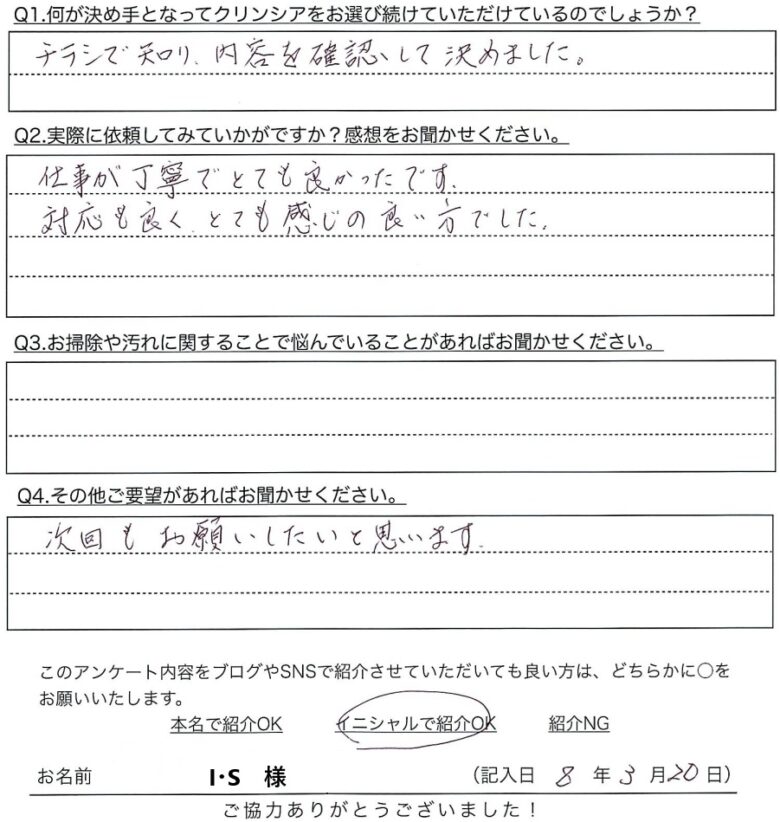 Q1.何が決め手となってクリンシアをお選び続けていただけているのでしょうか？
チラシで知り、内容を確認して決めました。
Q2.実際に依頼してみていかがですか？感想をお聞かせください。
仕事が丁寧でとても良かったです。
対応も良く、とても感じの良い方でした。
Q3.お掃除や汚れに関することで悩んでいることがあればお聞かせください。
Q4.その他ご要望があればお聞かせください。
次回もお願いしたいと思います。
このアンケート内容をブログやSNSで紹介させていただいても良い方は、どちらかに○を
お願いいたします。
本名で紹介OK イニシャルで紹介OK 紹介NG
お名前 I・S 様 （記入日 8 年 3 月 20 日）
ご協力ありがとうございました！